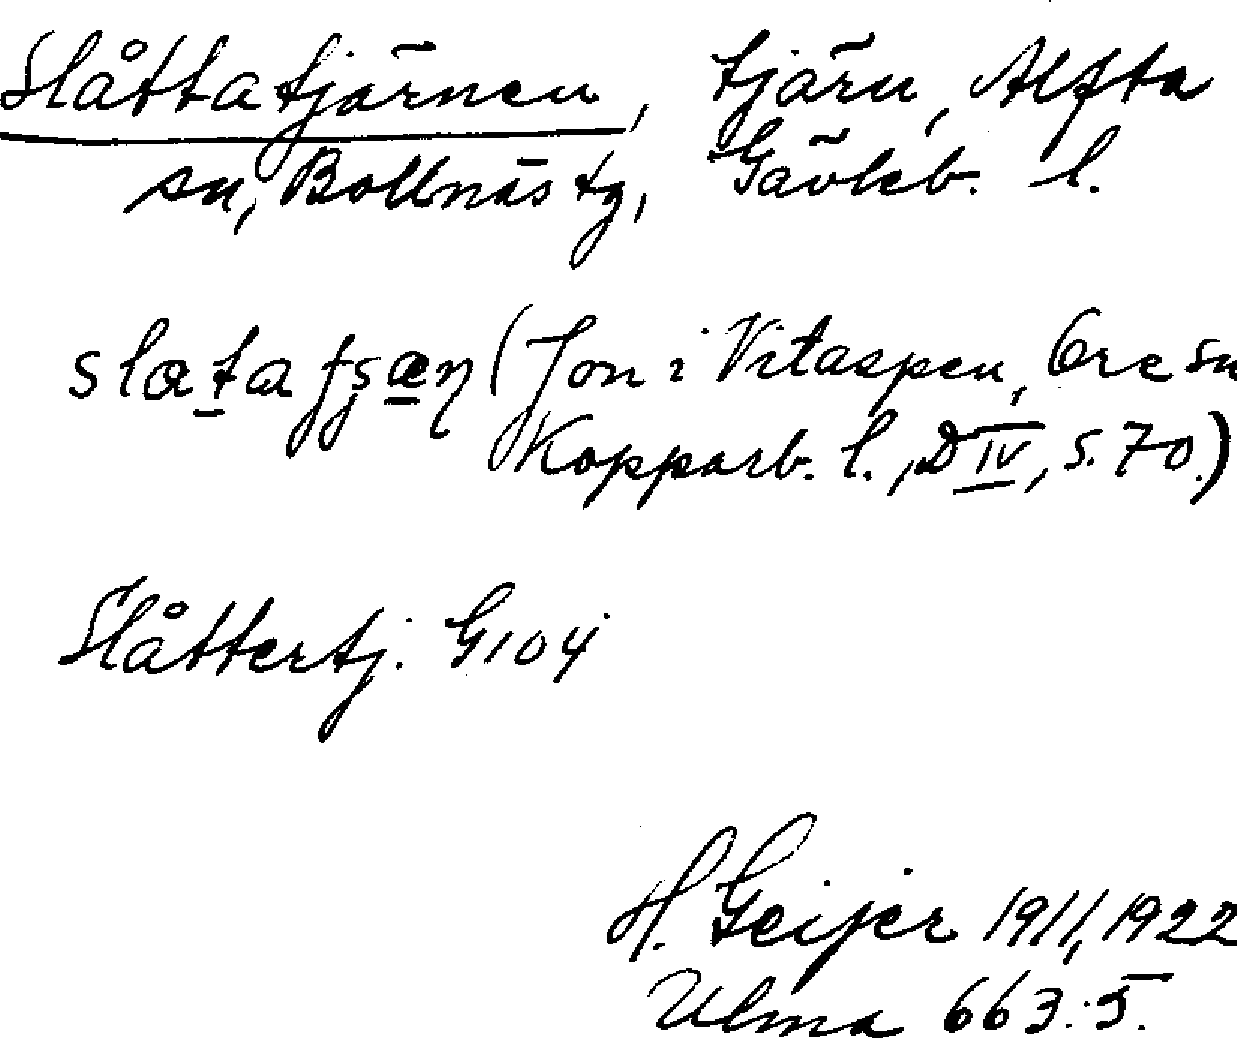 Slåttatjärnen, tjärn, Alfta
sn, Bollnäs tg, Gävleb. l.
(Jon i Vitaspen, Ore sn
Kopparb. l., D IV, s. 70.)
Slåttertj. G104
H. Geijer 1911, 1922
Ulma 663:5.